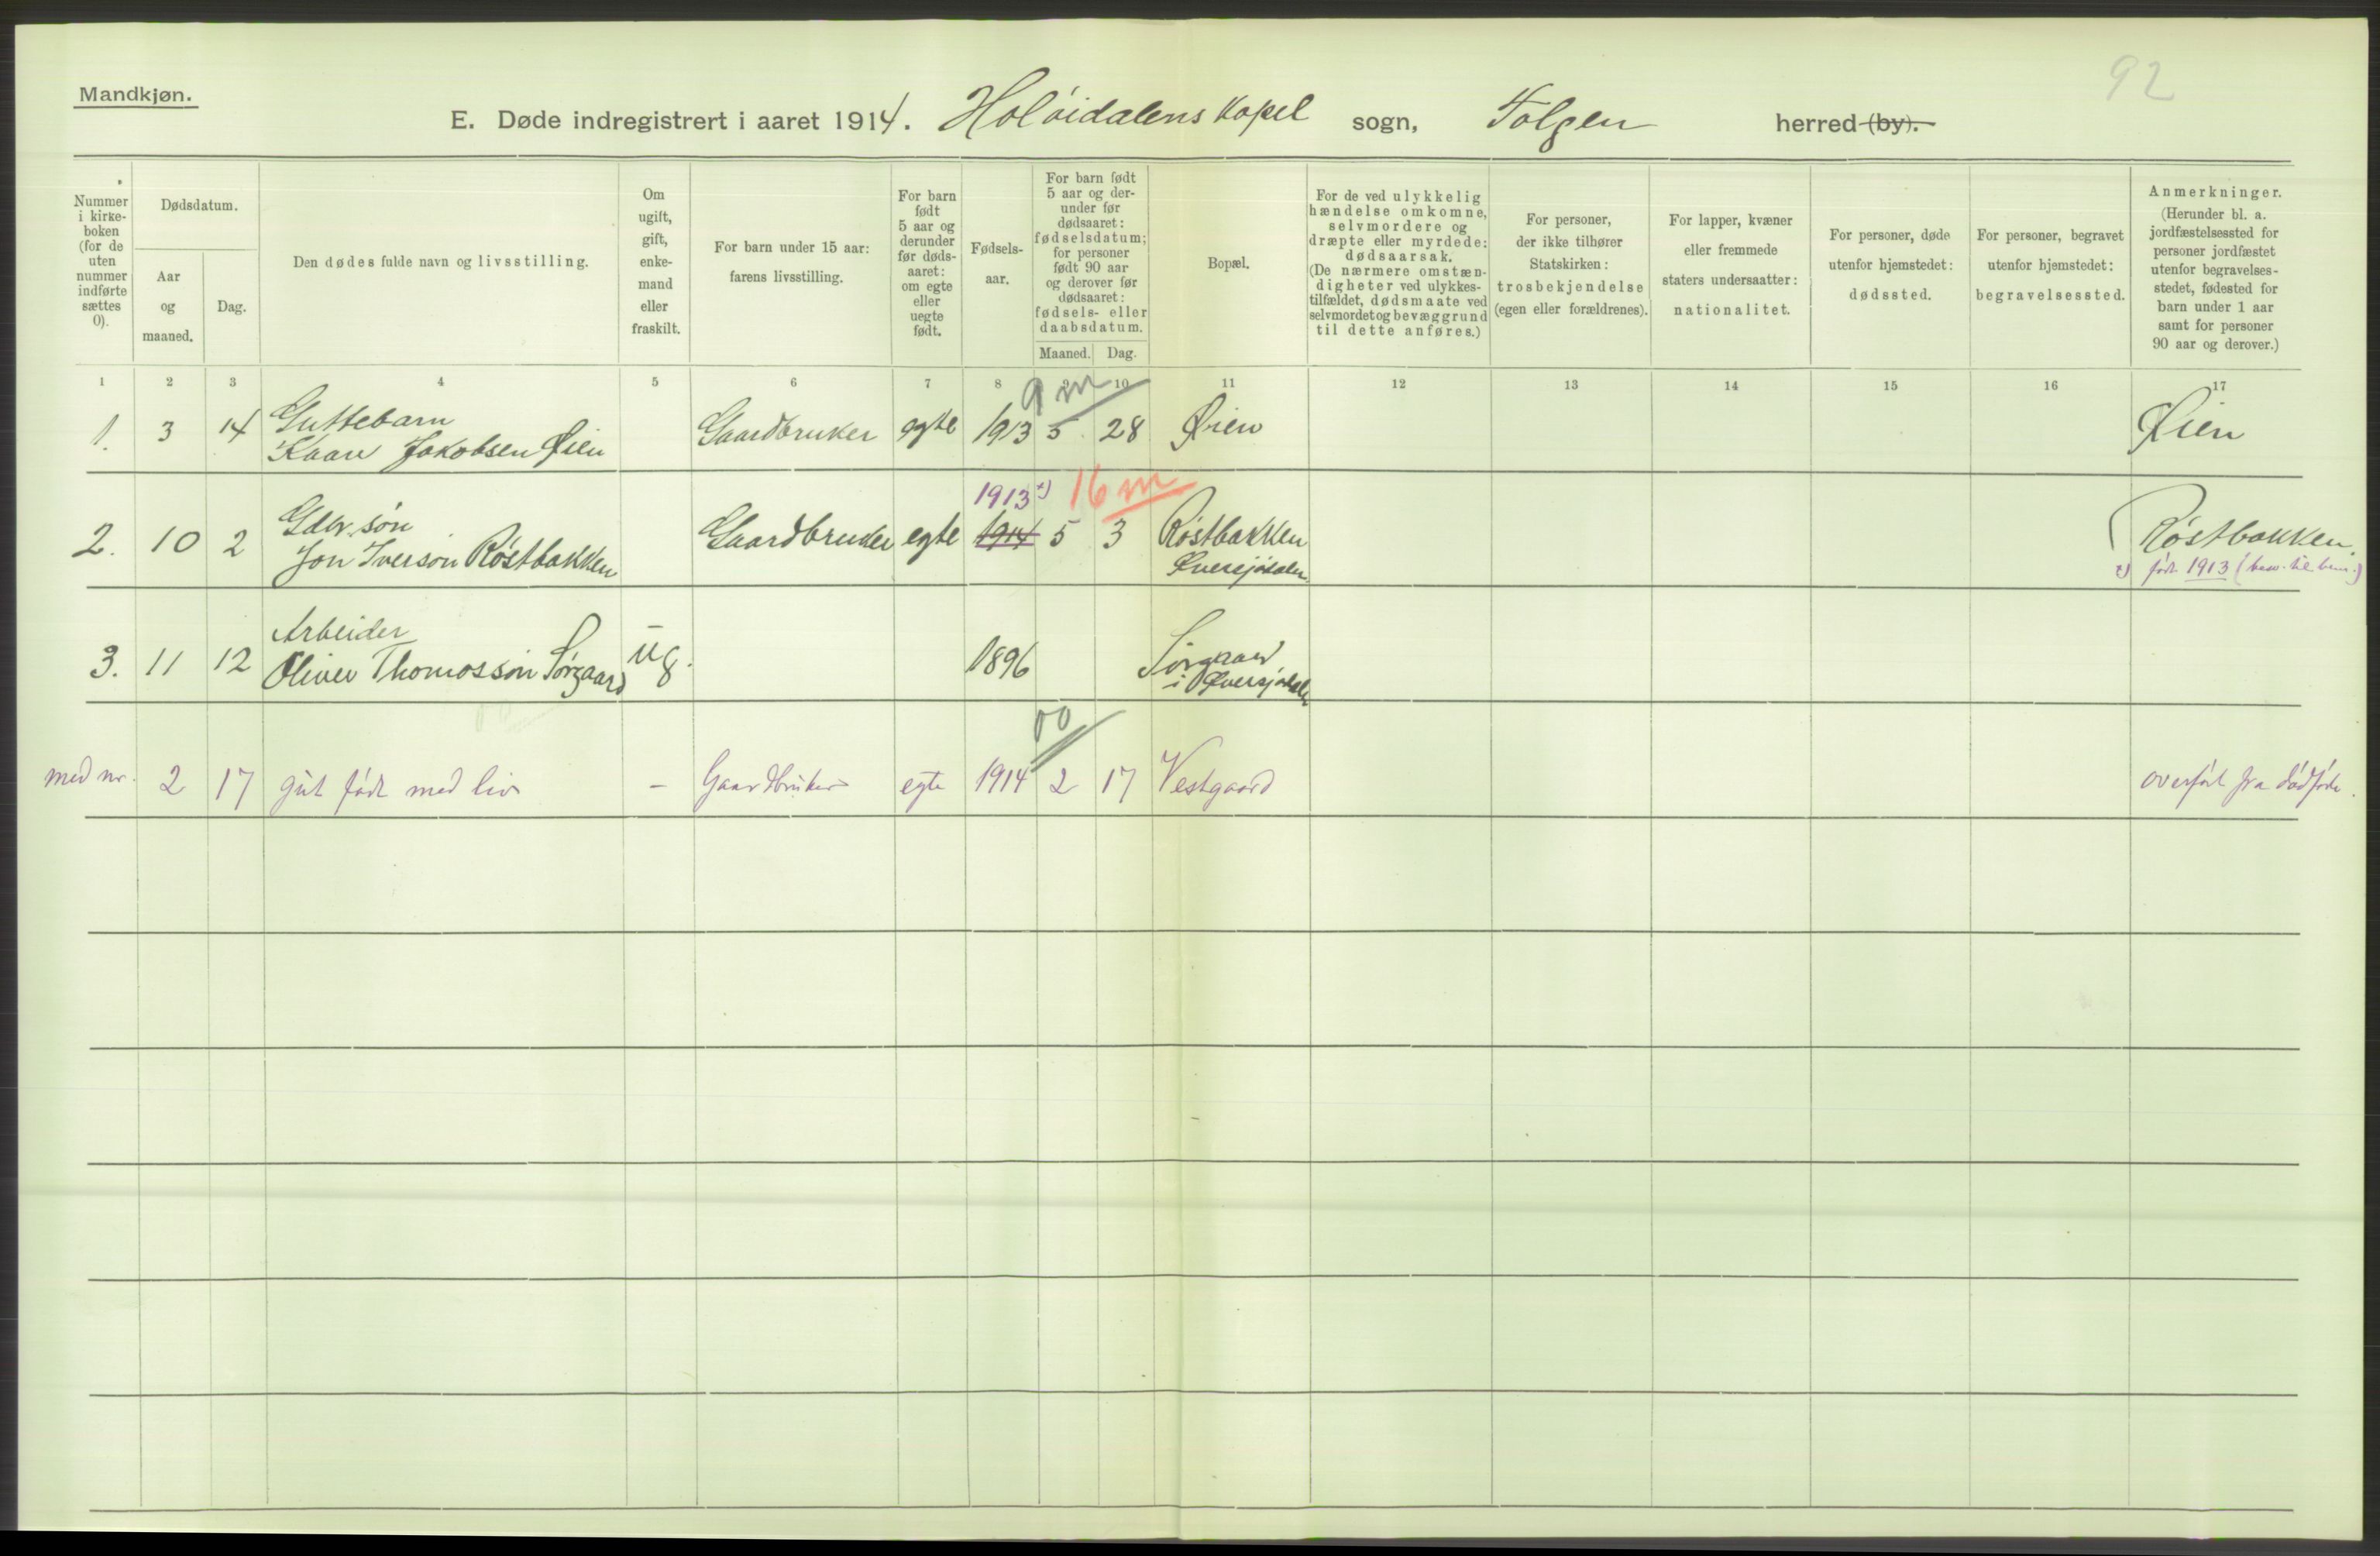 Mandkjøn.
92
E. Døde indregistrert i aaret 1914. Holöidalens Kapel sogn, Tolgen herred (by).
Nummer
i kirke-
boken
(for de
uten
nummer
indførte
sættes
0).
Dødsdatum.
Aar
og
maaned.
Dag.
Den dødes fulde navn og livsstilling.
Om
ugift,
gift,
enke-
mand
eller
fraskilt.
For barn under 15 aar:
farens livsstilling.
For barn
født
5 aar og
derunder
før døds-
aaret:
om egte
eller
uegte
født.
Fødsels-
aar.
For barn født
5 aar og der-
under før
dødsaaret:
fødselsdatum;
for personer
født 90 aar
og derover før
dødsaaret:
fødsels- eller
daabsdatum.
Maaned. Dag.
Bopæl.
For de ved ulykkelig
hændelse omkomne,
selvmordere og
dræpte eller myrdede:
dødsaarsak.
(De nærmere omstæn-
digheter ved ulykkes-
tilfældet, dødsmaate ved
selvmordet og bevæggrund
til dette anføres.)
For personer,
der ikke tilhører
Statskirken:
trosbekjendelse
(egen eller forældrenes).
For lapper, kvæner
eller fremmede
staters undersaatter:
nationalitet.
For personer, døde
utenfor hjemstedet:
dødssted.
For personer, begravet
utenfor hjemstedet:
begravelsessted.
Anmerkninger.
(Herunder bl. a.
jordfæstelsessted for
personer jordfæstet
utenfor begravelses-
stedet, fødested for
barn under 1 aar
samt for personer
90 aar og derover.)
1 2 3 4 5 6 7 8 9 10 11 12 13 14 15 16 17
9 m
Guttebarn
1. 3 14 Kaare Jakobsen Øien Gaardbruker egte 1913 5 28 Øien Øien
1913 x) 16 m
Gdbr. søn
2. 10 2 Jon Iversøn Röstbakken Gaardbruker egte 1914 5 3 Röstbakken Röstbakken.
Øversjødalen x) født 1913
Arbeider
3. 11 12 Oliver Thomassøn Sørgaard ug. 1896 Sørgaard
i Øversjødalen
00
med nr. 2 17 gut født med liv – Gaardbruker egte 1914 2 17 Vestgaard overført fra dødføde.